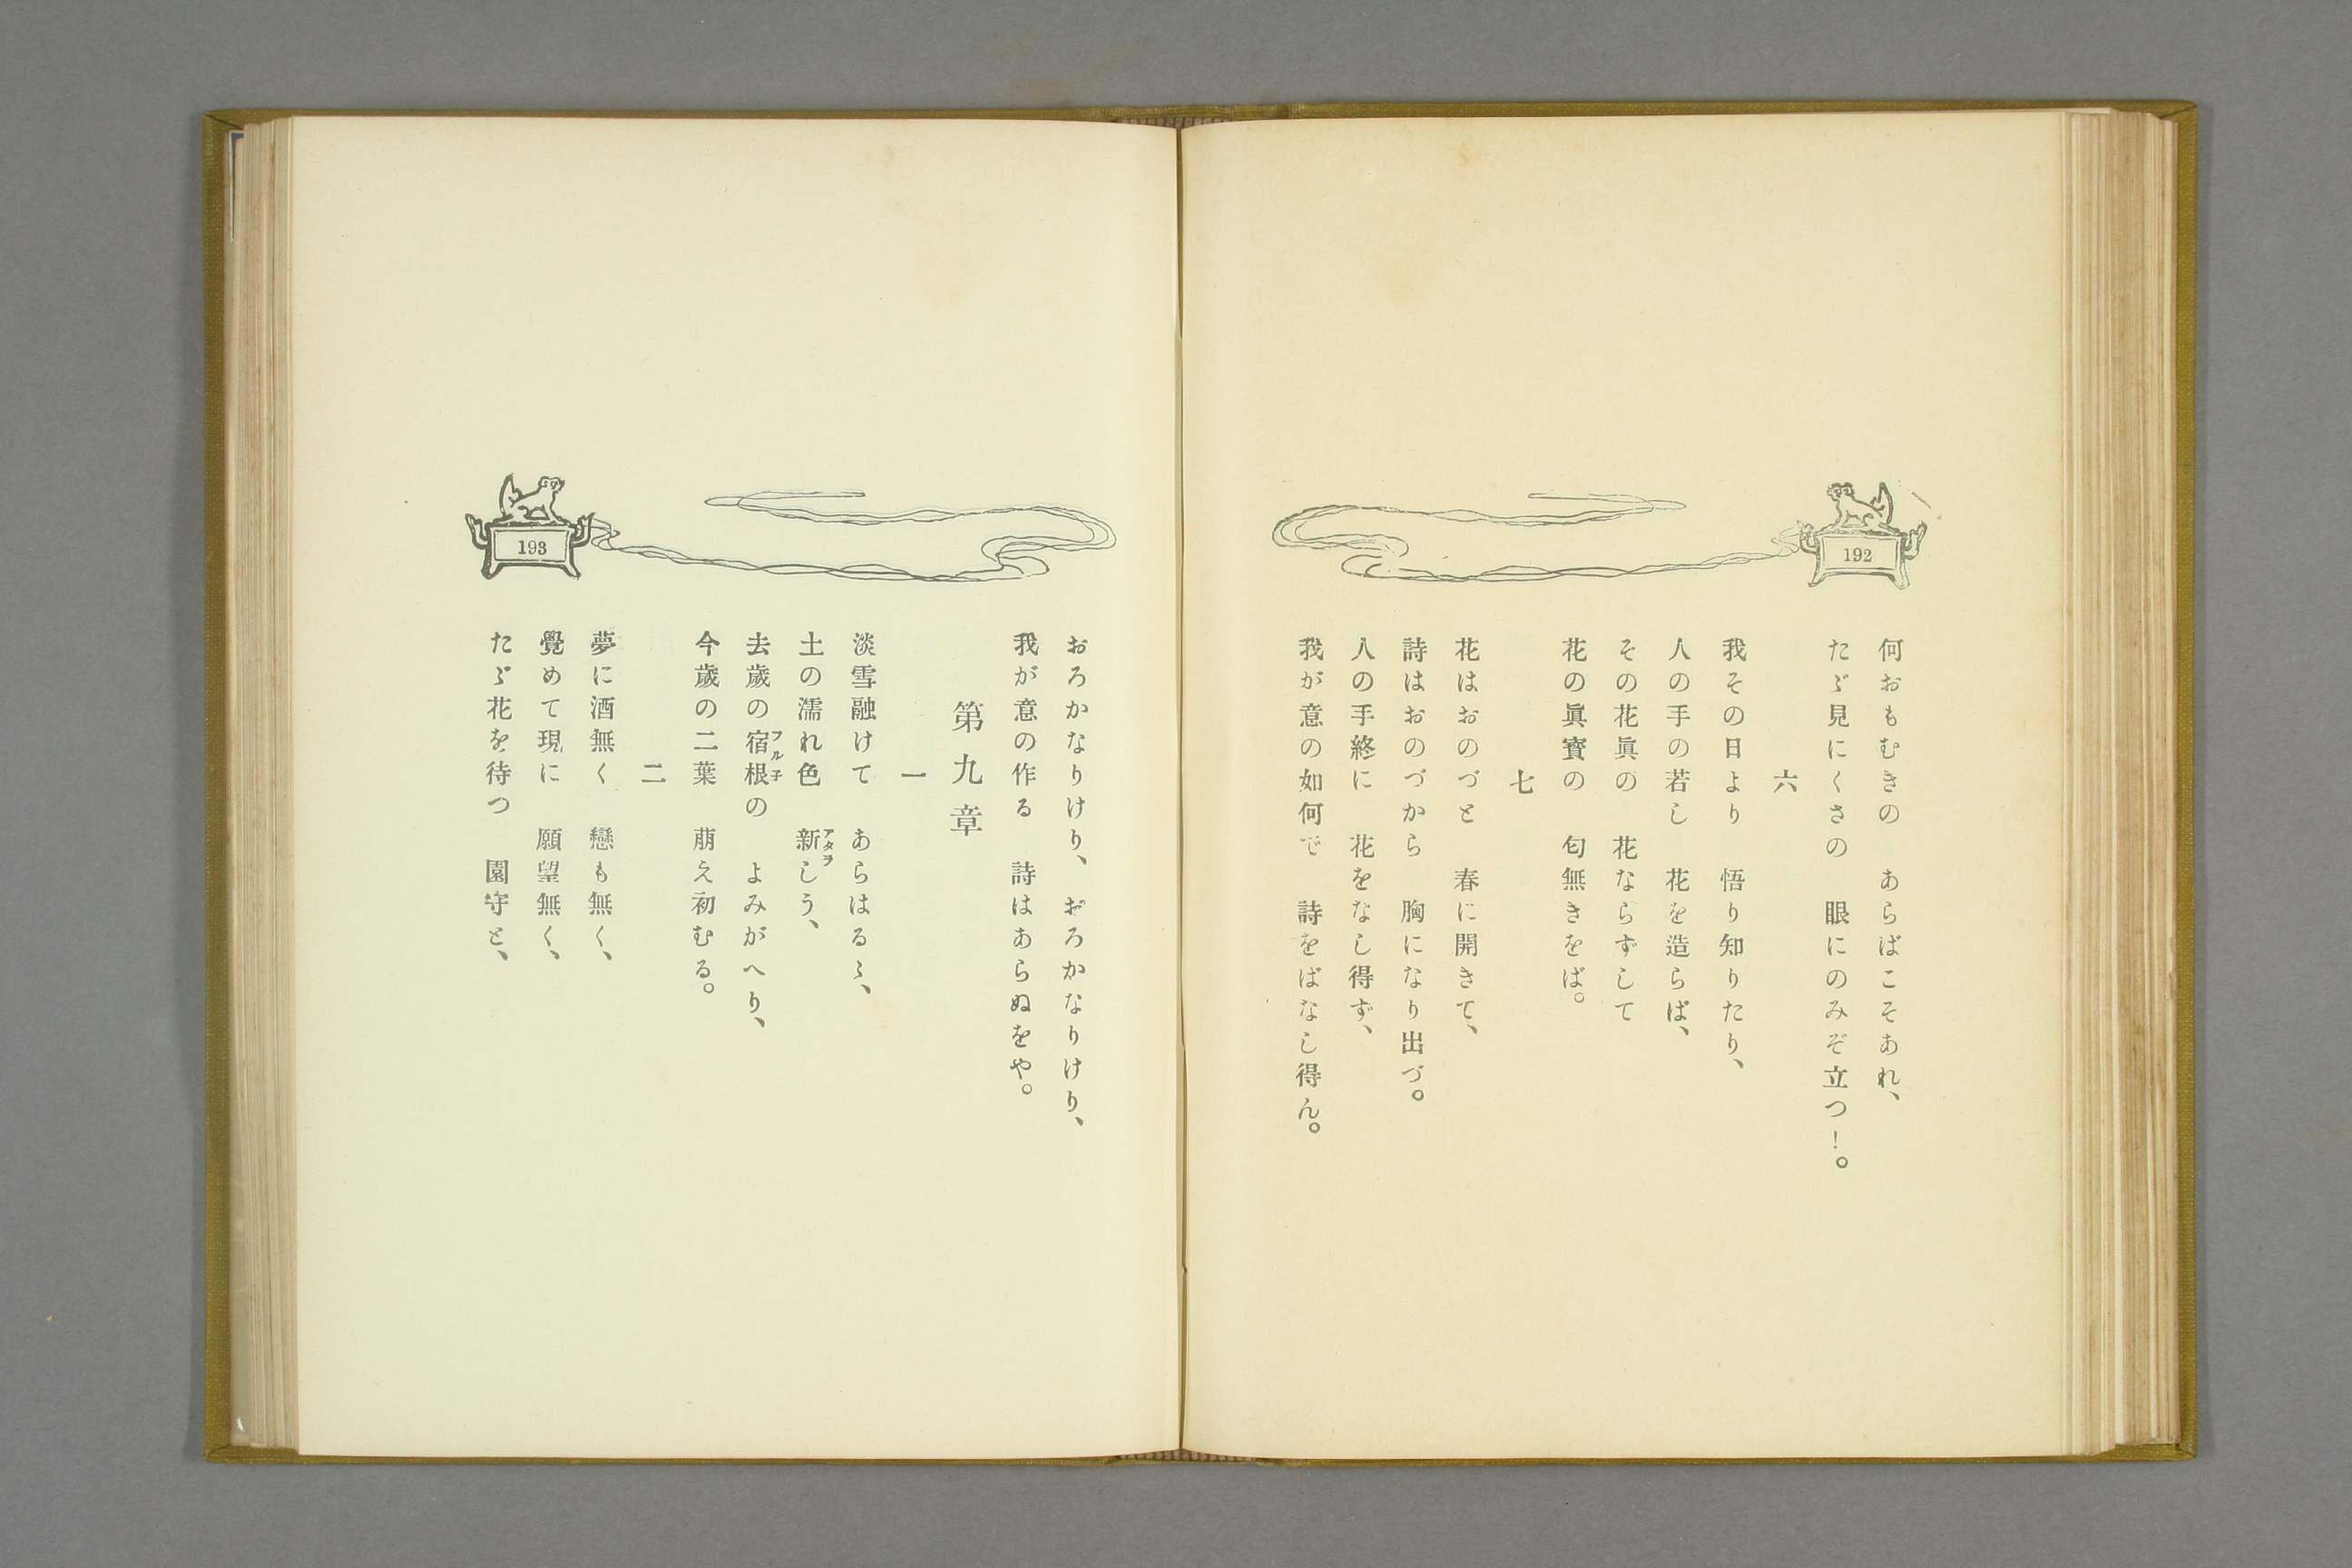 192
何おもむきの　あらばこそあれ、
たゞ見にくさの　眼にのみぞ立つ！。
六
我その日より　悟り知りたり、
人の手の若し　花を造らば、
その花眞の　花ならずして
花の眞實の　匂無きをば。
七
花はおのづと　春に開きて、
詩はおのづから　胸になり出づ。
人の手終に　花をなし得ず、
我が意の如何で　詩をばなし得ん。
193
おろかなりけり、おろかなりけり、
我が意の作る　詩はあらぬをや。
第九章
一
淡雪融けて　あらはるゝ、
土の濡れ色　新しう、
アタヲ
去歲の宿根の　よみがへり、
フル子
今歲の二葉　萠え初むる。
二
夢に酒無く　戀も無く、
覺めて現に　願望無く、
たゞ花を待つ　園守と、